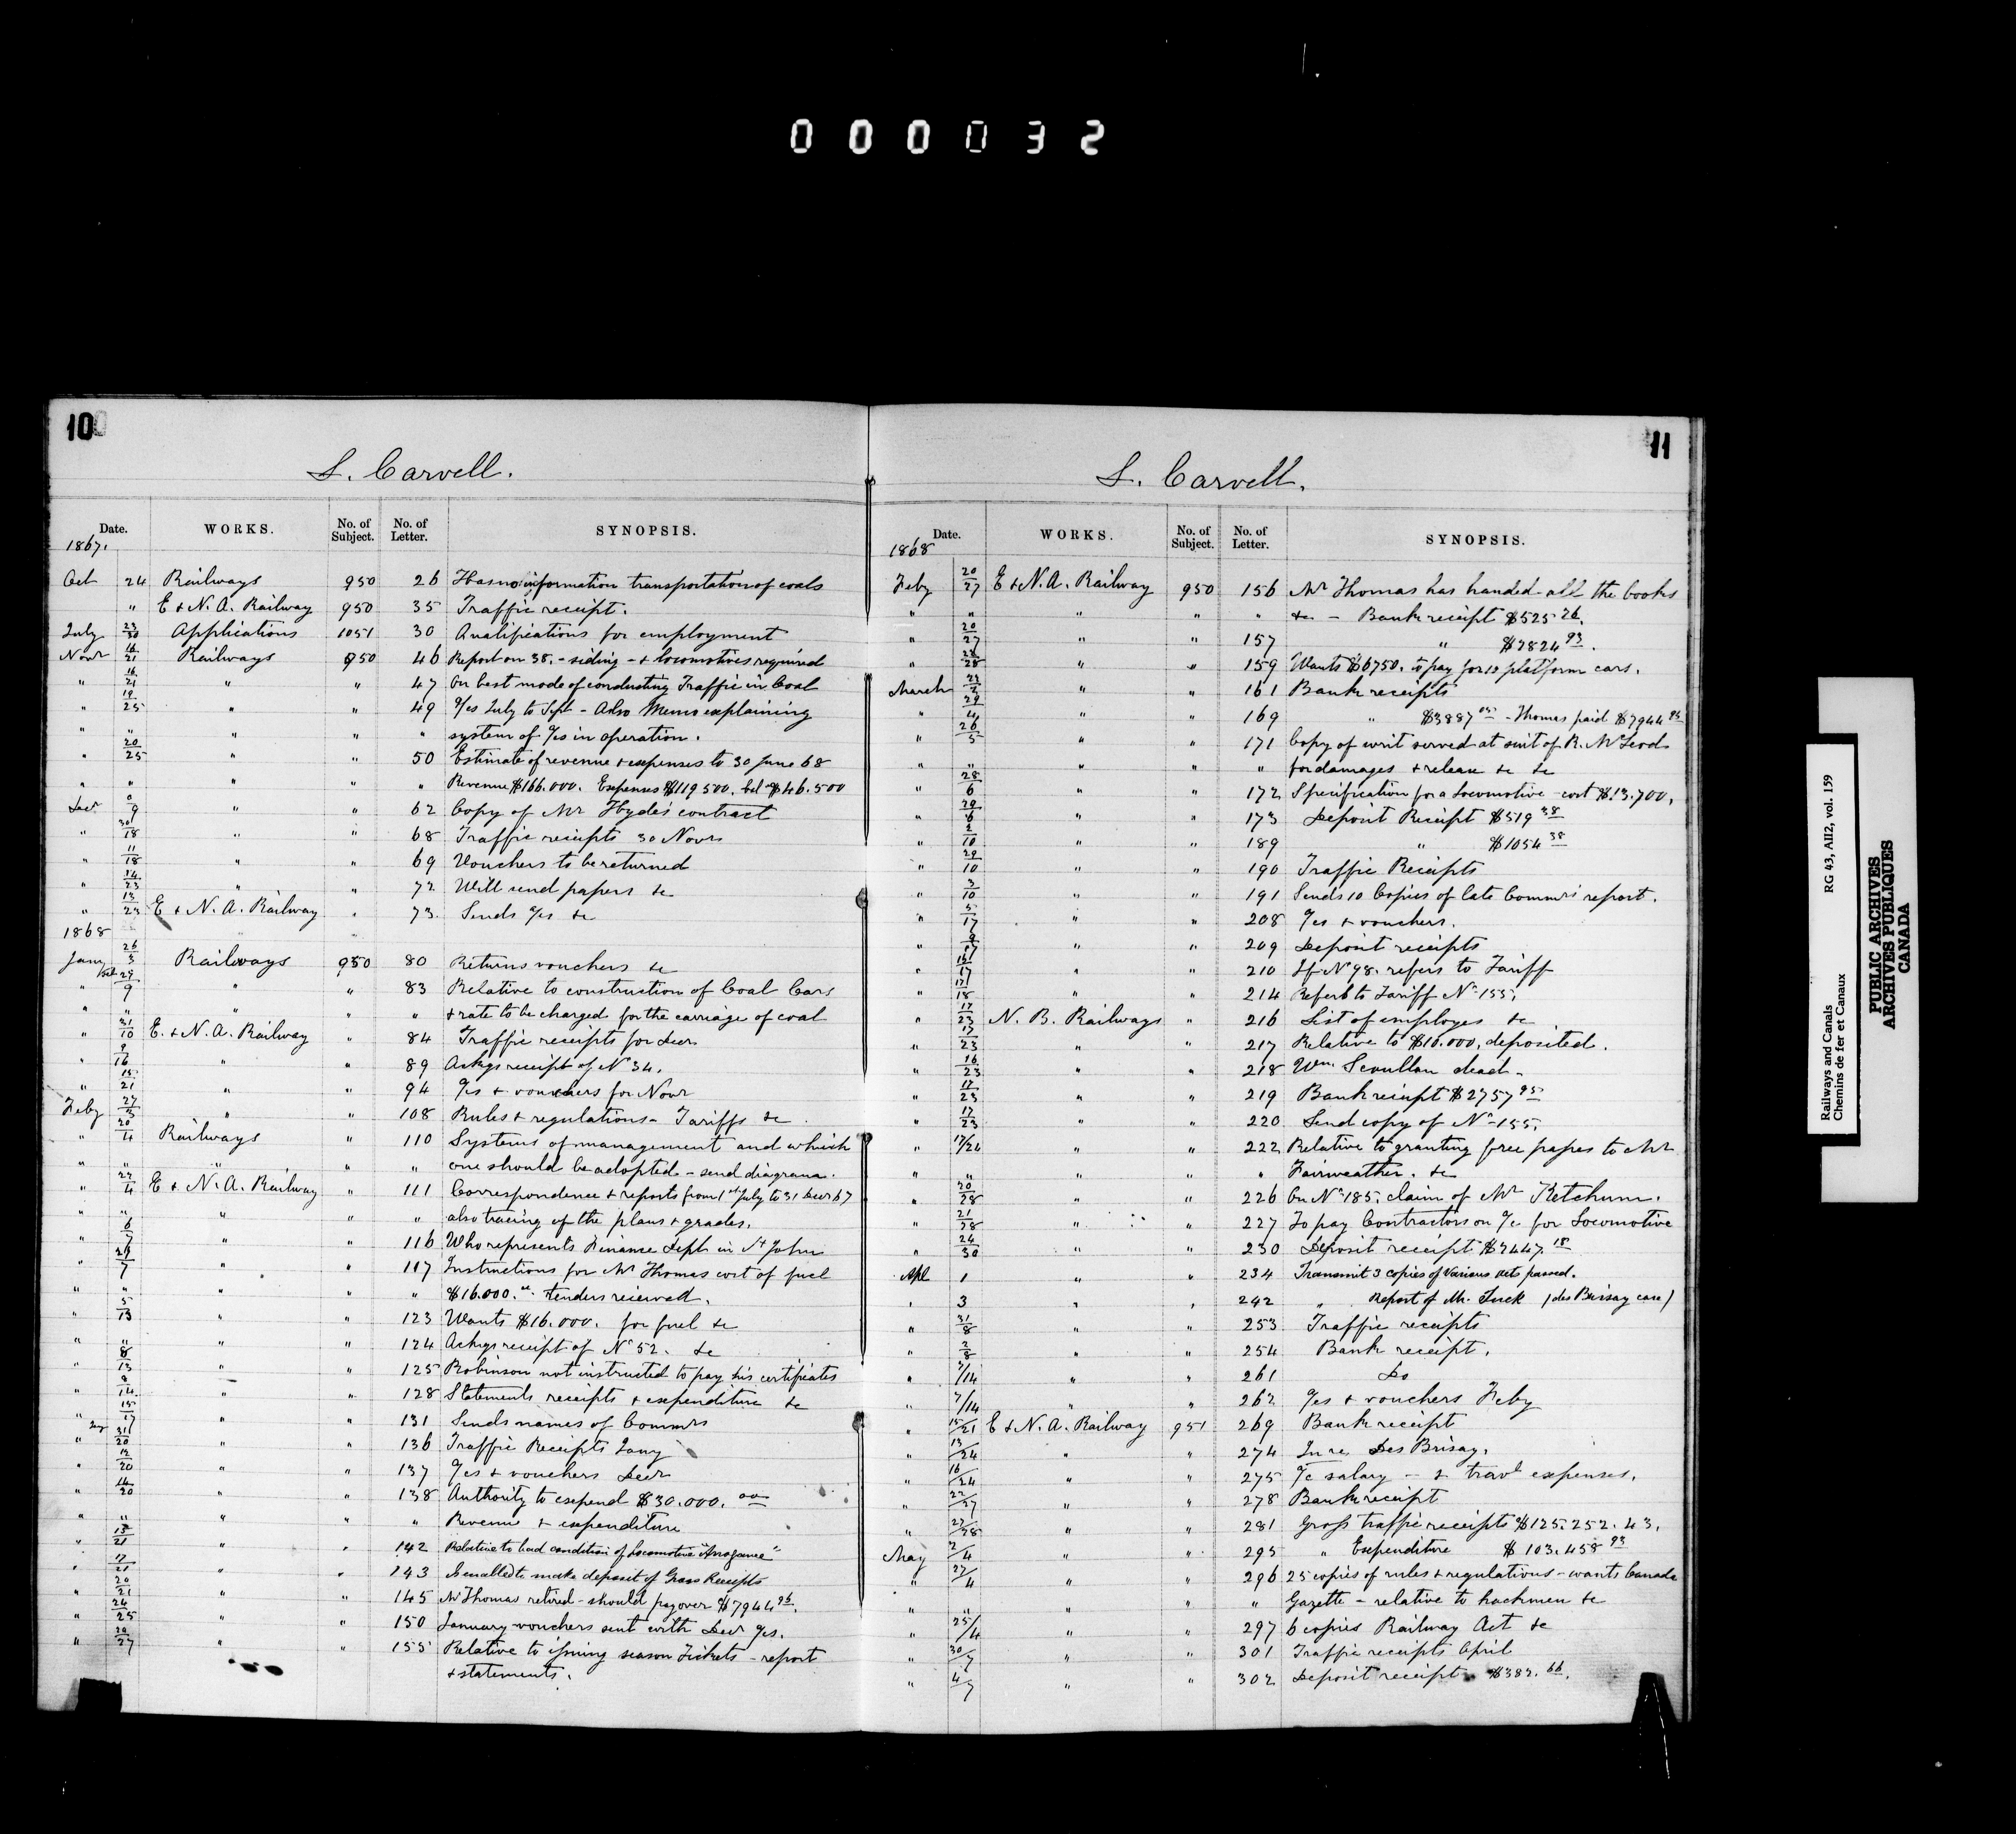 000032
10
L. Carvell.
Date. WORKS. No. of Subject. No. of Letter. SYNOPSIS.
1867.
Oct 24 Railways 950 26 Has no information transportation of coals
" E & N. A. Railway 950 35 Traffic receipt.
July 23/30 Applications 1051 30 Qualifications for employment
Novr 16/21 Railways 950 46 Report on 38. - siding - & locomotives required
" 16/21 " " 47 On best mode of conducting Traffic in Coal
" 19/25 " " 49 a/cs July to Sept - Also Memo explaining
" " " " " system of a/cs in operation.
" 20/25 " " 50 Estimate of revenue & expenses to 30 June 68
" " " " " Revenue $166.000. Expenses $119.500. bal $46.500
Decr 9 " " 62 Copy of Mr Hyde's contract
" 30/18 " " 68 Traffic receipts 30 Novr
" 11/18 " " 69 Vouchers to be returned
" 14/23 " " 72 Will send papers &c
" 13/23 E & N. A. Railway " 73 Sends a/cs &c
1868
Jany 26/3 Railways 950 80 Returns vouchers &c
" 29/9 " " 83 Relative to construction of Coal Cars
" " " " " & rate to be charged for the carriage of coal
" 31/10 E. & N. A. Railway " 84 Traffic receipts for Decr
" 9/16 " " 89 Ackgs receipt of No 34.
" 15/21 " " 94 a/cs & vouchers for Novr
Feby 27/3 " " 108 Rules & regulations - Tariffs &c
" 20/4 Railways " 110 Systems of management and which
" " " " " one should be adopted - send diagrams.
" 22/4 E & N. A. Railway " 111 Correspondence & reports from 1st July to 31 Decr 67
" " " " " also tracing of the plans & grades.
" 6/7 " " 116 Who represents Finance Dept in St John
" 29/7 " " 117 Instructions for Mr Thomas cost of fuel
" " " " $16.000.00 tenders received.
" 5/13 " " 123 Wants $16.000. for fuel &c
" " " " 124 Ackgs receipt of No 52. &c
" 8/13 " " 125 Robinson not instructed to pay his certificates
" 8/14 " " 128 Statements receipts & expenditure &c
" 15/17 " " 131 Sends names of Commrs
" 31/20 " " 136 Traffic Receipts Jany
" 12/20 " " 137 a/cs & vouchers Decr
" 14/20 " " 138 Authority to expend $30.000.00
" " " " " Revenue & expenditure
" 13/21 " " 142 Relative to bad condition of Locomotive
" 17/21 " " 143 Is enabled to make deposit of Gross Receipts
" 20/21 " " 145 Mr Thomas retired - should pay over $7944 96.
" 24/25 " " 150 January vouchers sent with Decr a/cs.
" 20/27 " " 155 Relative to issuing season Tickets - report
& statements.
11
L. Carvell.
Date. WORKS. No. of Subject. No. of Letter. SYNOPSIS.
1868
Feby 20/27 E & N. A. Railway 950 156 Mr Thomas has handed all the books
" " " " " &c - Bank receipt $525 26.
" 20/27 " " 157 " $2824 93.
" 28 " " 159 Wants $6750. to pay for 12 platform cars.
March 24/2 " " 161 Bank receipts
" 29/4 " " 169 " $3887 05 - Thomas paid $7944 95
" 26/5 " " 171 Copy of writ served at suit of R. McLeod
" " " " " for damages & release &c &c
" 28/6 " " 172 Specification for a Locomotive - cost $13.700.
" 29/6 " " 173 Deposit Receipt $519 38
" 2/10 " " 189 " $1054 38
" 29/10 " " 190 Traffic Receipts
" 3/10 " " 191 Sends 10 Copies of late Commrs report.
" 5/17 " " 208 a/cs & vouchers.
" 9/17 " " 209 Deposit receipts
" 16/17 " " 210 If No 98. refers to Tariff
" 17/18 " " 214 Refers to Tariff No 155.
" 17/23 N. B. Railways " 216 List of employes &c
" 13/23 " " 217 Relative to $16.000. deposited.
" 16/23 " " 218 Wm Scoullar dead -
" 17/23 " " 219 Bank receipt $2757 95
" 17/23 " " 220 Send copy of No 155.
" 17/24 " " 222 Relative to granting free passes to Mr
" " " " " Fairweather. &c
" 20/28 " " 226 On No 185. claim of Mr Ketchum.
" 21/28 " " 227 To pay Contractors on a/c for Locomotive
" 24/30 " " 230 Deposit receipt $2447.18
Apl 1 " " 234 Transmit 3 copies of Various acts passed.
" 3 " " 242 " Report of Mr. Tuck (des Brisay case)
" 31/8 " " 253 Traffic receipts
" 2/8 " " 254 Bank receipt.
" 7/14 " " 261 Do
" 7/14 " " 262 a/cs & vouchers Feby
" 15/21 E & N. A. Railway 951 269 Bank receipt
" 13/24 " " 274 In re Des Brisay.
" 16/24 " " 275 a/c salary - & travl expenses.
" 22/27 " " 278 Bank receipt
" 27/28 " " 281 Gross traffic receipts $125.252.43.
May 2/4 " " 295 " Expenditure $103.458 93
" 27/4 " " 296 25 copies of rules & regulations - wants Canada
" " " " " Gazette - relative to hackmen &c
" 25/4 " " 297 6 copies Railway Act &c
" 30/7 " " 301 Traffic receipts April
" 4/7 " " 302 Deposit receipt $382.66.
Railways and Canals RG 43, AII2, vol. 159
Chemins de fer et Canaux
PUBLIC ARCHIVES
ARCHIVES PUBLIQUES
CANADA